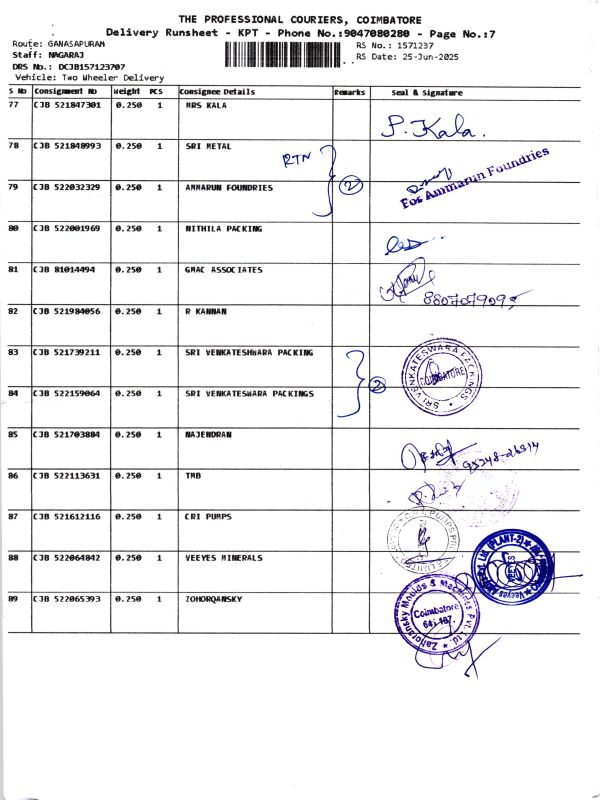 THE PROFESSIONAL COURIERS, COIMBATORE
Delivery Runsheet - KPT - Phone No.:9047080280 - Page No.:7
Route: GANASAPURAM
RS No.: 1571237
Staff: NAGARAJ
RS Date: 25-Jun-2025
DRS No.: DCJB157123707
Vehicle: Two Wheeler Delivery
S No Consignment No Weight PCS Consignee Details Remarks Seal & Signature
77 CJB 521847301 0.250 1 MRS KALA
P. Kala.
78 CJB 521848993 0.250 1 SRI METAL
RTN
79 CJB 522032329 0.250 1 AMMARUN FOUNDRIES
2
For Ammarun Foundries
80 CJB 522001969 0.250 1 NITHILA PACKING
81 CJB 81014494 0.250 1 GMAC ASSOCIATES
82 CJB 521984056 0.250 1 R KANNAN
83 CJB 521739211 0.250 1 SRI VENKATESHWARA PACKING
84 CJB 522159064 0.250 1 SRI VENKATESWARA PACKINGS
2
SRI VENKATESWARA PACKINGS
COIMBATORE
85 CJB 521703884 0.250 1 NAJENDRAN
86 CJB 522113631 0.250 1 TMB
87 CJB 521612116 0.250 1 CRI PUMPS
88 CJB 522064842 0.250 1 VEEYES MINERALS
(PLANT-2)
VEEYES
89 CJB 522065393 0.250 1 ZOHORQANSKY
Zahoransky Moulds & Machines Pvt. Ltd.
Coimbatore
641 107.